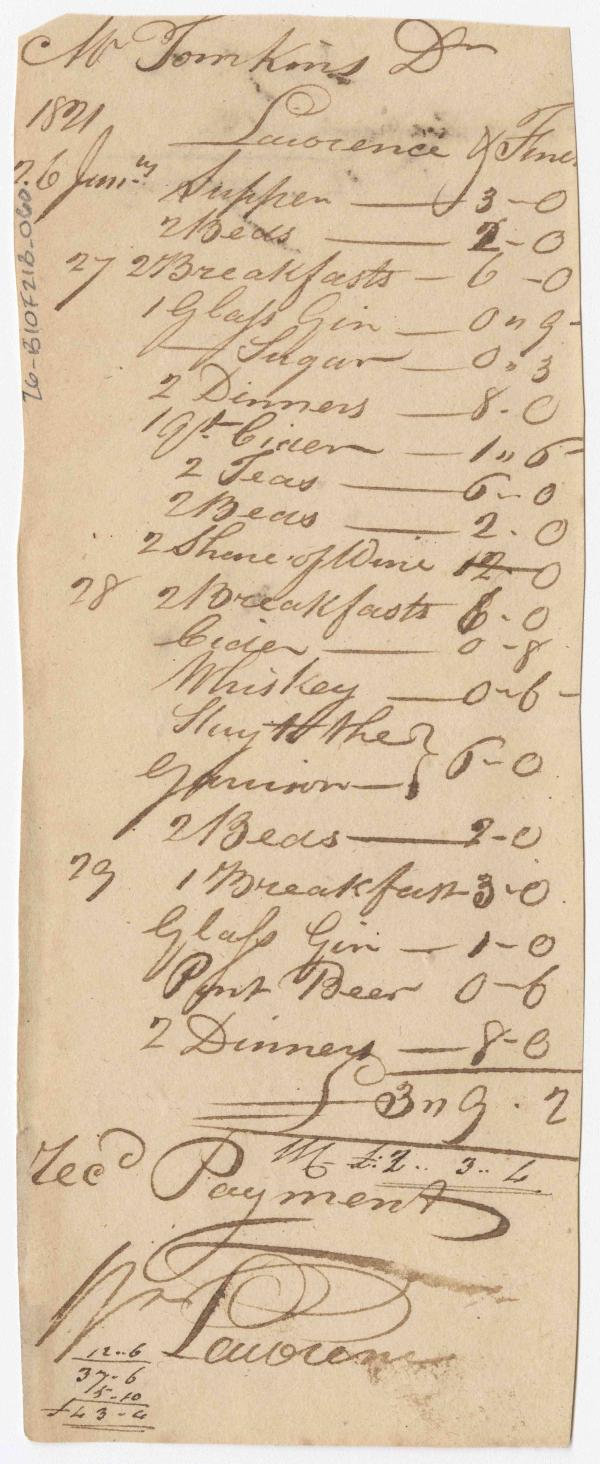 Mr Tomkins Dr
1821
Lawrence & Finc
26 Jany Supper — 3-0
2 Beds — 2-0
27 2 Breakfasts — 6-0
1 Glass Gin — 0"9
— Sugar — 0"3
2 Dinners — 8-0
1 Qt Cider — 1"6
2 Teas — 6-0
2 Beds — 2-0
2 Share of Wine 12-0
28 2 Breakfasts 6-0
Cider — 0-8
Whiskey — 0-6
to the
Garrison — 6-0
2 Beds — 2-0
29 1 Breakfast 3-0
Glass Gin — 1-0
Pint Beer 0-6
2 Dinners — 8-0
3"9.2
£2..3..4
Recd Payment
Wm Lawrence
12-6
37-6
5-10
£43-4
76-B10F21B-060.